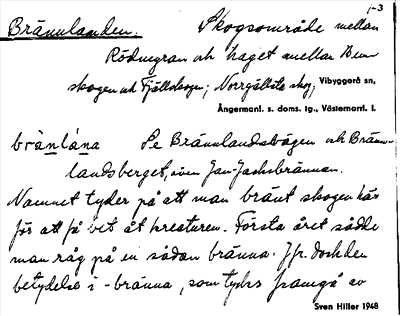 1-3
Brännlanden. Skogsområde mellan
Rödmyran och haget mellan Bron-
skogen och Fjällskogen; Norrgällsta skog, Vibyggerå sn,
Ångermanl. s. doms. tg., Västernorrl. l.
brànlána Se Brännlandsvägen och Bränn-
landsberget, även Jan-Jacksbrännan.
Namnet tyder på att man bränt skogen här
för att få bet åt kreaturen. Första året sådde
man råg på en sådan bränna. Jfr. dock den
betydelse i -bränna, som tycks framgå av
Sven Hiller 1948